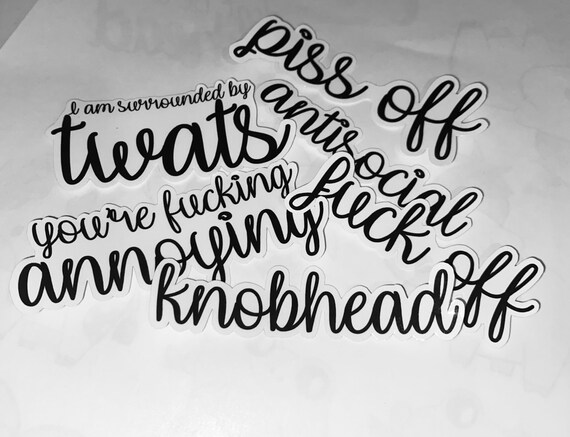 piss off
I am surrounded by
twats
antisocial
fuck off
you're fucking
annoying
knobhead